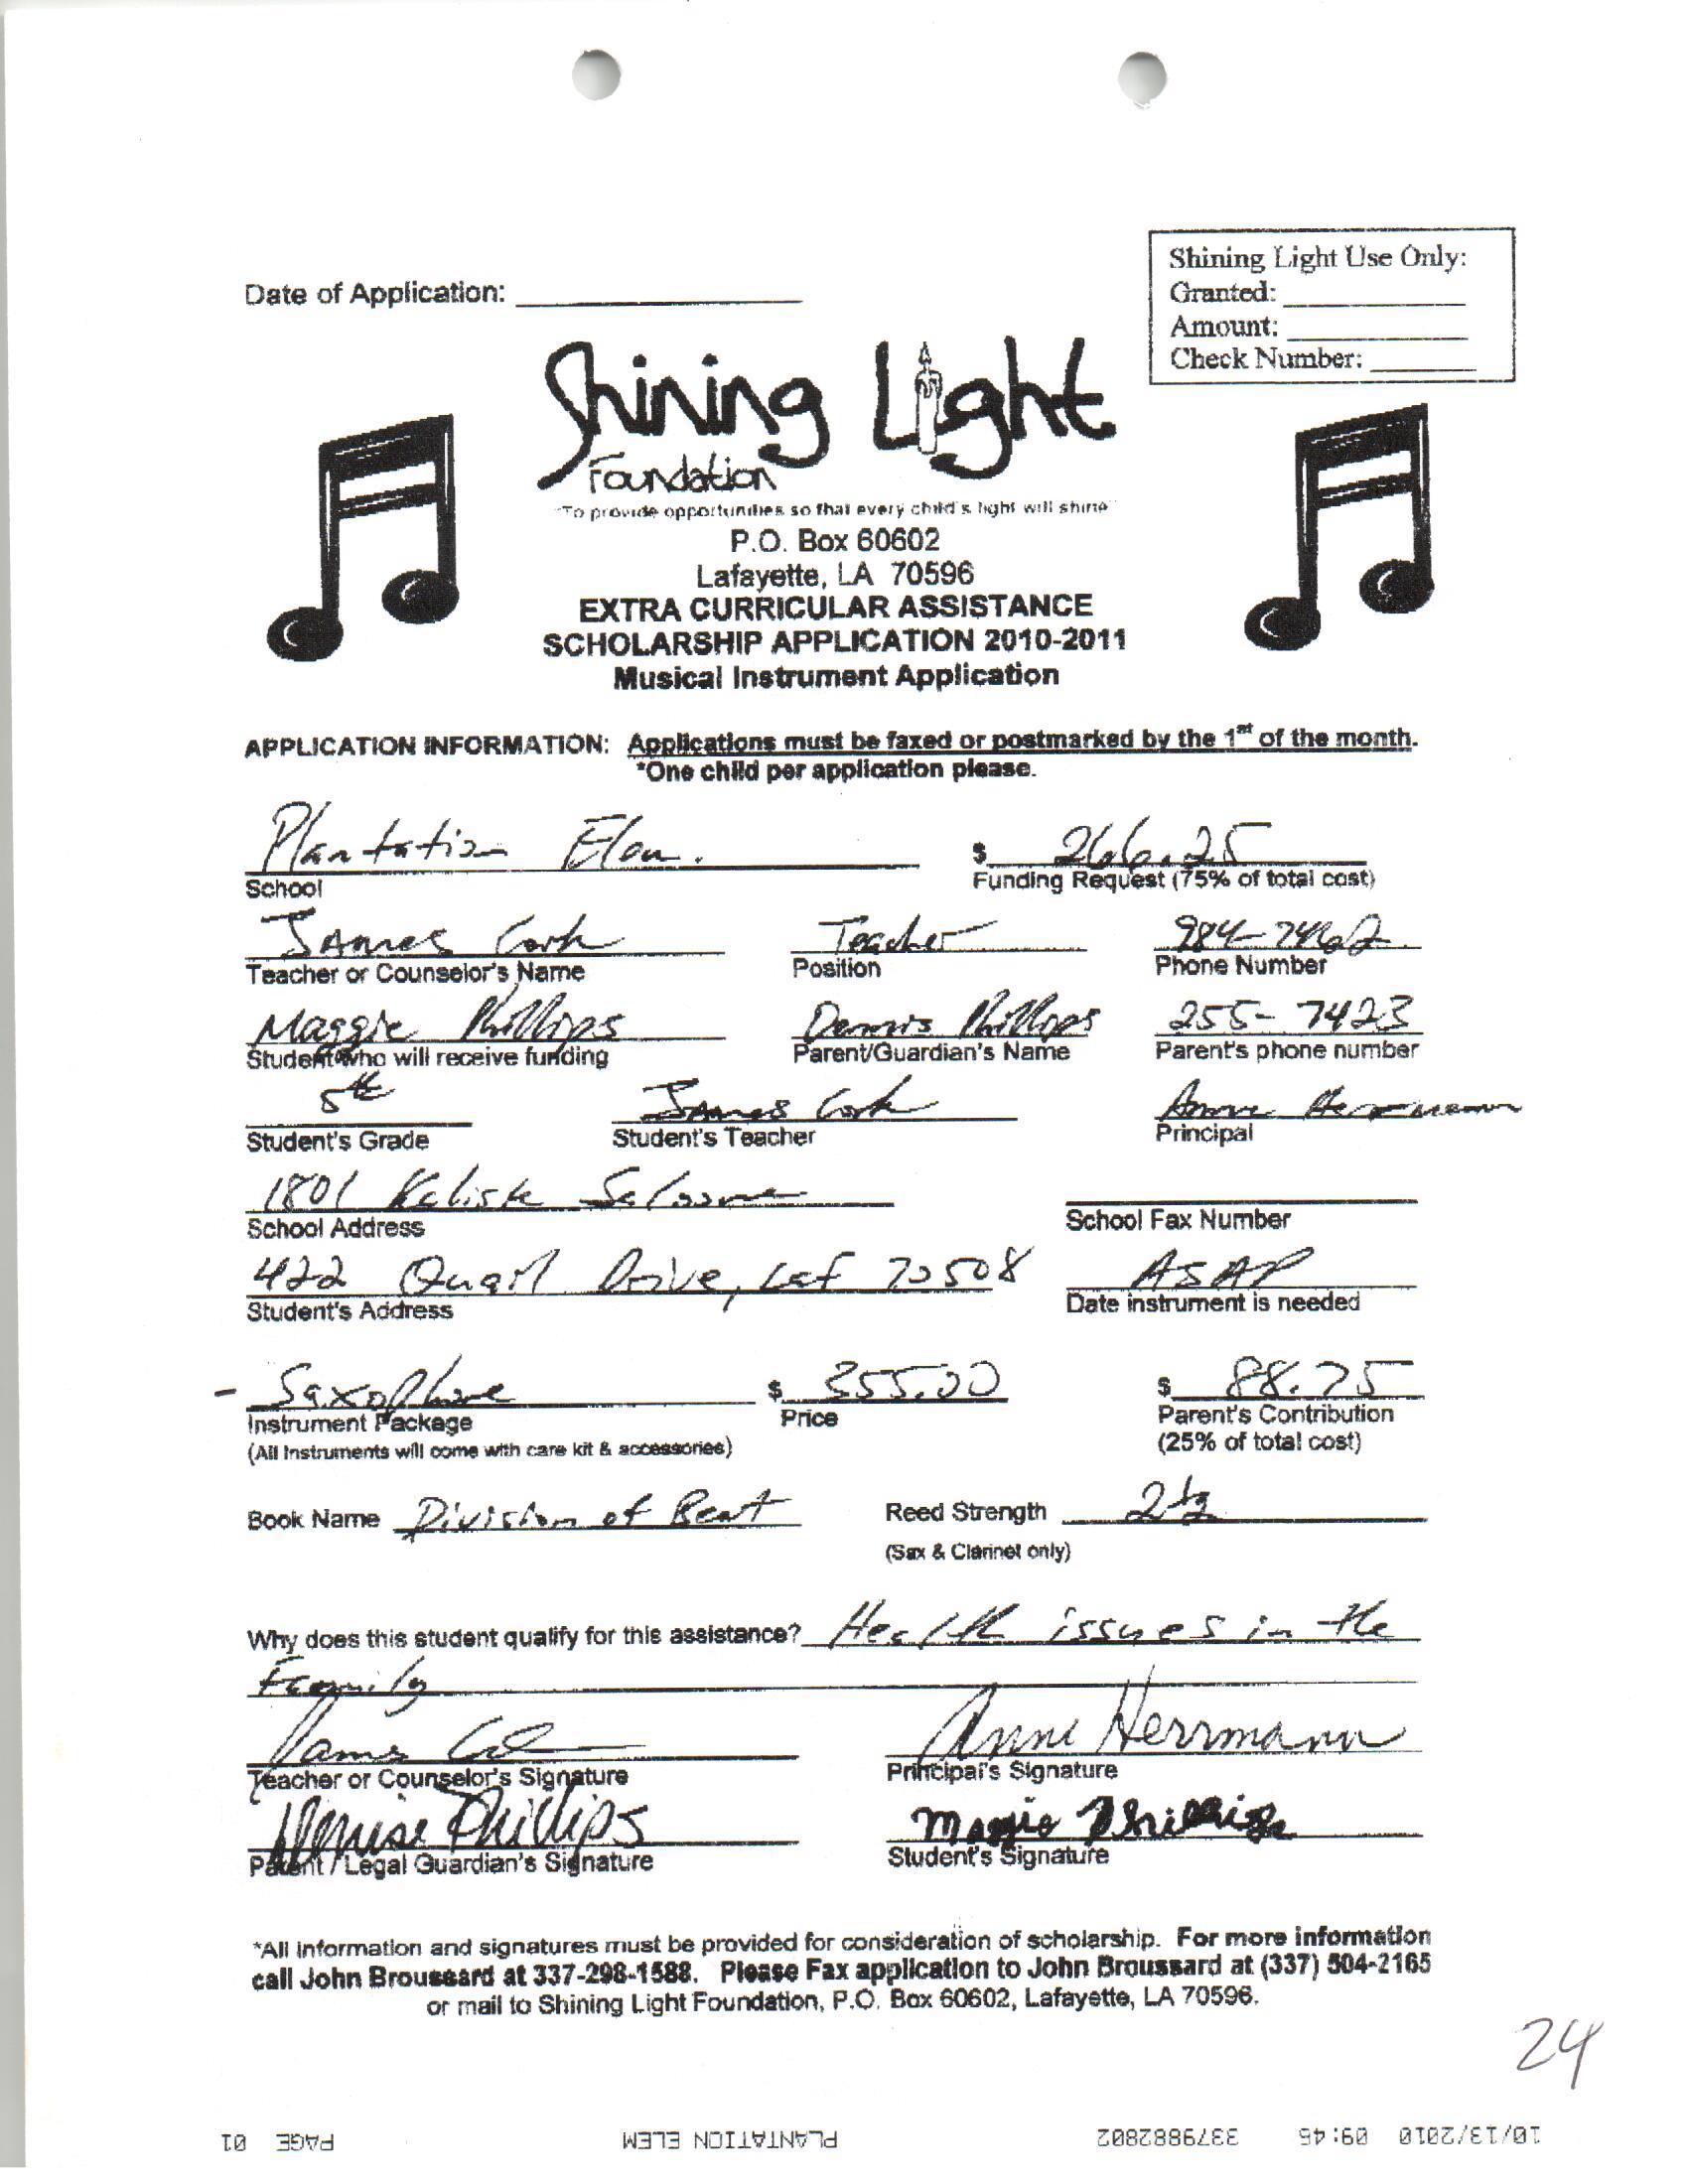 Shining Light Use Only:
Granted:
Amount:
Check Number:
Date of Application:
Shining Light
Foundation
"To provide opportunities so that every child's light will shine"
P.O. Box 60602
Lafayette, LA 70596
EXTRA CURRICULAR ASSISTANCE
SCHOLARSHIP APPLICATION 2010-2011
Musical Instrument Application
APPLICATION INFORMATION: Applications must be faxed or postmarked by the 1st of the month.
*One child per application please.
Plantation Elem. $ 266.25
School Funding Request (75% of total cost)
James Cork Teacher 984-7462
Teacher or Counselor's Name Position Phone Number
Maggie Phillips Dennis Phillips 255-7423
Student who will receive funding Parent/Guardian's Name Parent's phone number
5th James Cork Anne Herrmann
Student's Grade Student's Teacher Principal
1801 Kaliste Saloom
School Address School Fax Number
422 Quail Drive, Laf 70508 ASAP
Student's Address Date instrument is needed
- Saxophone $ 355.00 $ 88.75
Instrument Package Price Parent's Contribution
(All Instruments will come with care kit & accessories) (25% of total cost)
Book Name Division of Beat Reed Strength 2 1/2
(Sax & Clarinet only)
Why does this student qualify for this assistance? Health issues in the
Family
James Anne Herrmann
Teacher or Counselor's Signature Principal's Signature
Denise Phillips Maggie Phillips
Parent / Legal Guardian's Signature Student's Signature
*All information and signatures must be provided for consideration of scholarship. For more information
call John Broussard at 337-298-1588. Please Fax application to John Broussard at (337) 504-2165
or mail to Shining Light Foundation, P.O. Box 60602, Lafayette, LA 70596.
24
10/13/2010 09:46 3379882802 PLANTATION ELEM PAGE 01